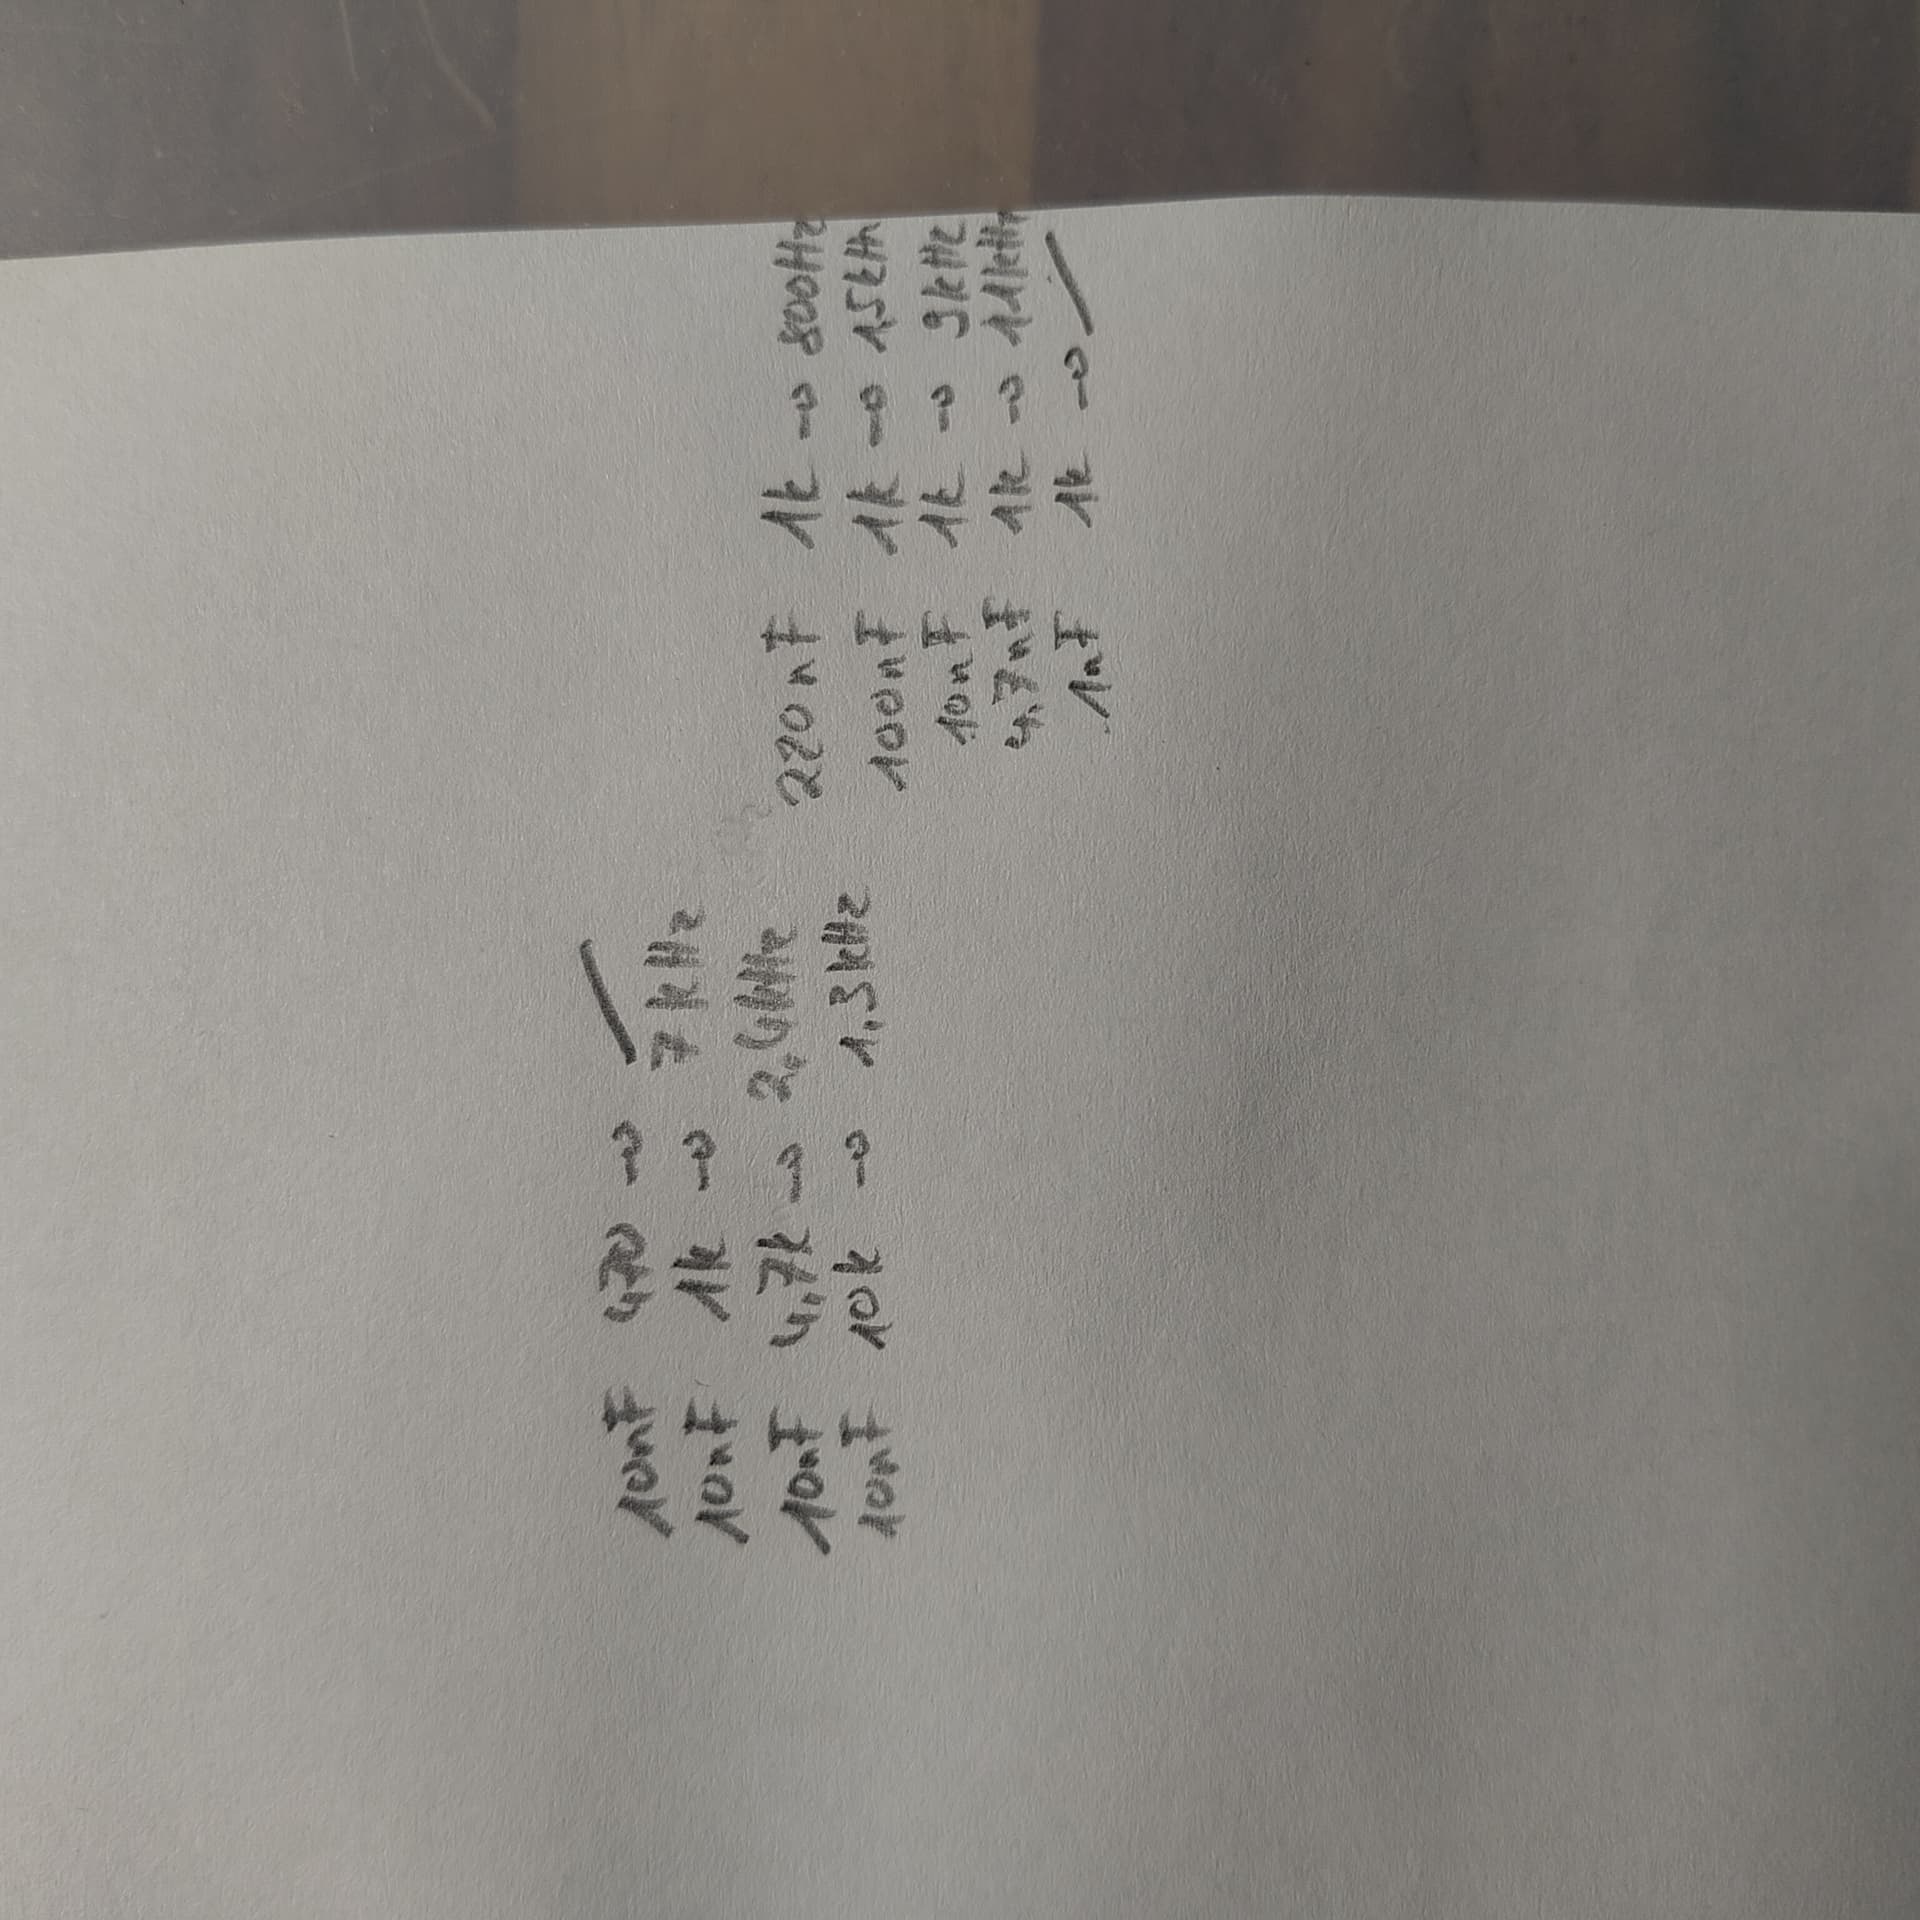 10nF 470 → /
10nF 1k → 7kHz
10nF 4,7k → 2,4kHz
10nF 10k → 1,3kHz
220nF 1k → 800Hz
100nF 1k → 1,5kHz
10nF 1k → 9kHz
4,7nF 1k → 11kHz
1nF 1k → /